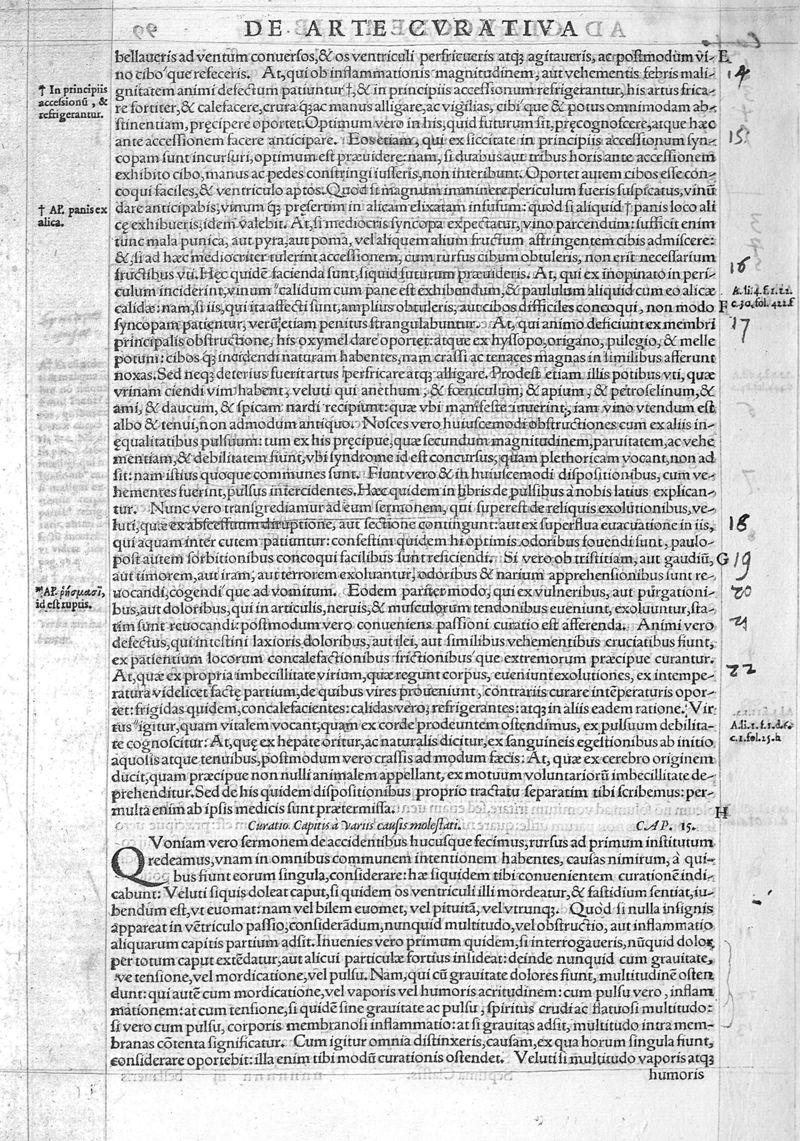 DE ARTE CVRATIVA
99
bellaueris ad ventum conuersos,& os ventriculi perfricueris atq; agitaueris, ac postmodùm vi- E
no cibo'que refeceris. At, qui ob inflammationis magnitudinem, aut vehementis febris mali- 14
† In principiis accessionũ, & refrigerantur.
gnitatem animi defectum patiuntur †, & in principiis accessionum refrigerantur, his artus frica-
re fortiter, & calefacere, crura q; ac manus alligare, ac vigilias, cibi'que & potus omnimodam ab-
stinentiam, pręcipere oportet. Optimum vero in his, quid futurum sit, pręcognoscere, atque hæc
ante accessionem facere anticipare. Eos etiam, qui ex siccitate in principiis accessionum syn- 15
copam sunt incursuri, optimum est præuidere: nam, si duabus aut tribus horis ante accessionem
exhibito cibo, manus ac pedes constringi iusseris, non interibunt. Oportet autem cibos esse con-
coqui faciles, & ventriculo aptos. Quòd si magnum imminere periculum fueris suspicatus, vinũ
† AP. panis ex alica.
dare anticipabis; vinum q; pręsertim in alicam elixatam infusum: quòd si aliquid † panis loco ali
cę exhibueris, idem valebit. At, si mediocris syncopa expectatur, vino parcendum: sufficit enim
tunc mala punica, aut pyra, aut poma, vel aliquem alium fructum astringentem cibis admiscere:
& si ad hæc mediocriter tulerint accessionem, cum rursus cibum obtuleris, non erit necessarium
fructibus vti. Hęc quidẽ facienda sunt, siquid futurum præuideris. At, qui ex inopinato in peri- 16
culum inciderint, vinum "calidum cum pane est exhibendum, & paululum aliquid cum eo alicæ
A. li. 4. f. 1. t. 2. c. 30. fol. 422. f
calidæ: nam, si iis, qui ita affecti sunt, amplius obtuleris, aut cibos difficiles concoqui, non modo F
syncopam patientur, verũ etiam penitus strangulabuntur. At, qui animo deficiunt ex membri 17
principalis obstructione, his oxymel dare oportet: atque ex hyssopo, origano, pulegio, & melle
potum: cibos q; incidendi naturam habentes, nam crassi ac tenaces magnas in similibus afferunt
noxas. Sed neq; deterius fuerit artus perfricare atq; alligare. Prodest etiam illis potibus vti, quæ
vrinam ciendi vim habent, veluti qui anethum, & fœniculum, & apium, & petroselinum, &
ami, & daucum, & spicam nardi recipiunt: quæ vbi manifestè iuuerint, iam vino vtendum est
albo & tenui, non admodum antiquo. Nosces vero huiuscemodi obstructiones cum ex aliis in-
ęqualitatibus pulsuum: tum ex his pręcipue, quæ secundum magnitudinem, paruitatem, ac vehe
mentiam, & debilitatem fiunt, vbi syndrome id est concursus, quam plethoricam vocant, non ad
sit: nam istius quoque communes sunt. Fiunt vero & in huiuscemodi dispositionibus, cum ve-
hementes fuerint, pulsus intercidentes. Hæc quidem in libris de pulsibus à nobis latius explican-
tur. Nunc vero transgrediamur ad eum sermonem, qui superest de reliquis exolutionibus, ve-
luti, quæ ex abscessuum diruptione, aut sectione contingunt: aut ex superflua euacuatione in iis, 18
qui aquam inter cutem patiuntur: confestim quidem hi optimis odoribus fouendi sunt, paulo-
post autem sorbitionibus concoqui facilibus sunt reficiendi. Si vero ob tristitiam, aut gaudiũ, G 19
"AP. ῥήγμασι, id est rupiis.
aut timorem, aut iram, aut terrorem exoluantur, odoribus & narium apprehensionibus sunt re-
uocandi, cogendi'que ad vomitum. Eodem pariter modo, qui ex vulneribus, aut purgationi- 20
bus, aut doloribus, qui in articulis, neruis, & musculorum tendonibus eueniunt, exoluuntur, sta-
tim sunt reuocandi: postmodum vero conueniens passioni curatio est afferenda. Animi vero 21
defectus, qui intestini laxioris doloribus, aut ilei, aut similibus vehementibus cruciatibus fiunt,
ex patientium locorum concalefactionibus frictionibus'que extremorum præcipue curantur.
At, quæ ex propria imbecillitate virium, quæ regunt corpus, eueniunt exolutiones, ex intempe- 22
ratura videlicet factę partium, de quibus vires proueniunt, contrariis curare intẽperaturis opor-
tet: frigidas quidem, concalefacientes: calidas vero, refrigerantes: atq; in aliis eadem ratione. Vir
tus "igitur, quam vitalem vocant, quam ex corde prodeuntem ostendimus, ex pulsuum debilita-
A. li. 1. f. 1. d. 6. c. 1. fol. 25. h
te cognoscitur: At, quę ex hepate oritur, ac naturalis dicitur, ex sanguineis egestionibus ab initio
aquosis atque tenuibus, postmodum vero crassis ad modum fæcis: At, quæ ex cerebro originem
ducit, quam præcipue non nulli animalem appellant, ex motuum voluntariorũ imbecillitate de-
prehenditur. Sed de his quidem dispositionibus proprio tractatu separatim tibi scribemus: per-
multa enim ab ipsis medicis sunt prætermissa. H
Curatio Capitis à Variis causis molestati. CAP. 15.
QVoniam vero sermonem de accidentibus hucusque fecimus, rursus ad primum institutum
redeamus, vnam in omnibus communem intentionem habentes, causas nimirum, à qui-
bus fiunt eorum singula, considerare: hæ siquidem tibi conuenientem curationẽ indi-
cabunt: Veluti siquis doleat caput, si quidem os ventriculi illi mordeatur, & fastidium sentiat, iu-
bendum est, vt euomat: nam vel bilem euomet, vel pituitã, vel vtrunq;. Quòd si nulla insignis
appareat in vẽtriculo passio, considerãdum, nunquid multitudo, vel obstructio, aut inflammatio
aliquarum capitis partium adsit. Inuenies vero primum quidem, si interrogaueris, nũquid dolor
per totum caput extẽdatur, aut alicui particulæ fortius insideat: deinde nunquid cum grauitate,
ve tensione, vel mordicatione, vel pulsu. Nam, qui cũ grauitate dolores fiunt, multitudinẽ osten
dunt: qui autẽ cum mordicatione, vel vaporis vel humoris acritudinem: cum pulsu vero, inflam
mationem: at cum tensione, si quidẽ sine grauitate ac pulsu, spiritus crudi ac flatuosi multitudo:
si vero cum pulsu, corporis membranosi inflammatio: at si grauitas adsit, multitudo intra mem-
branas cõtenta significatur. Cum igitur omnia distinxeris, causam, ex qua horum singula fiunt,
considerare oportebit: illa enim tibi modũ curationis ostendet. Veluti si multitudo vaporis atq;
humoris